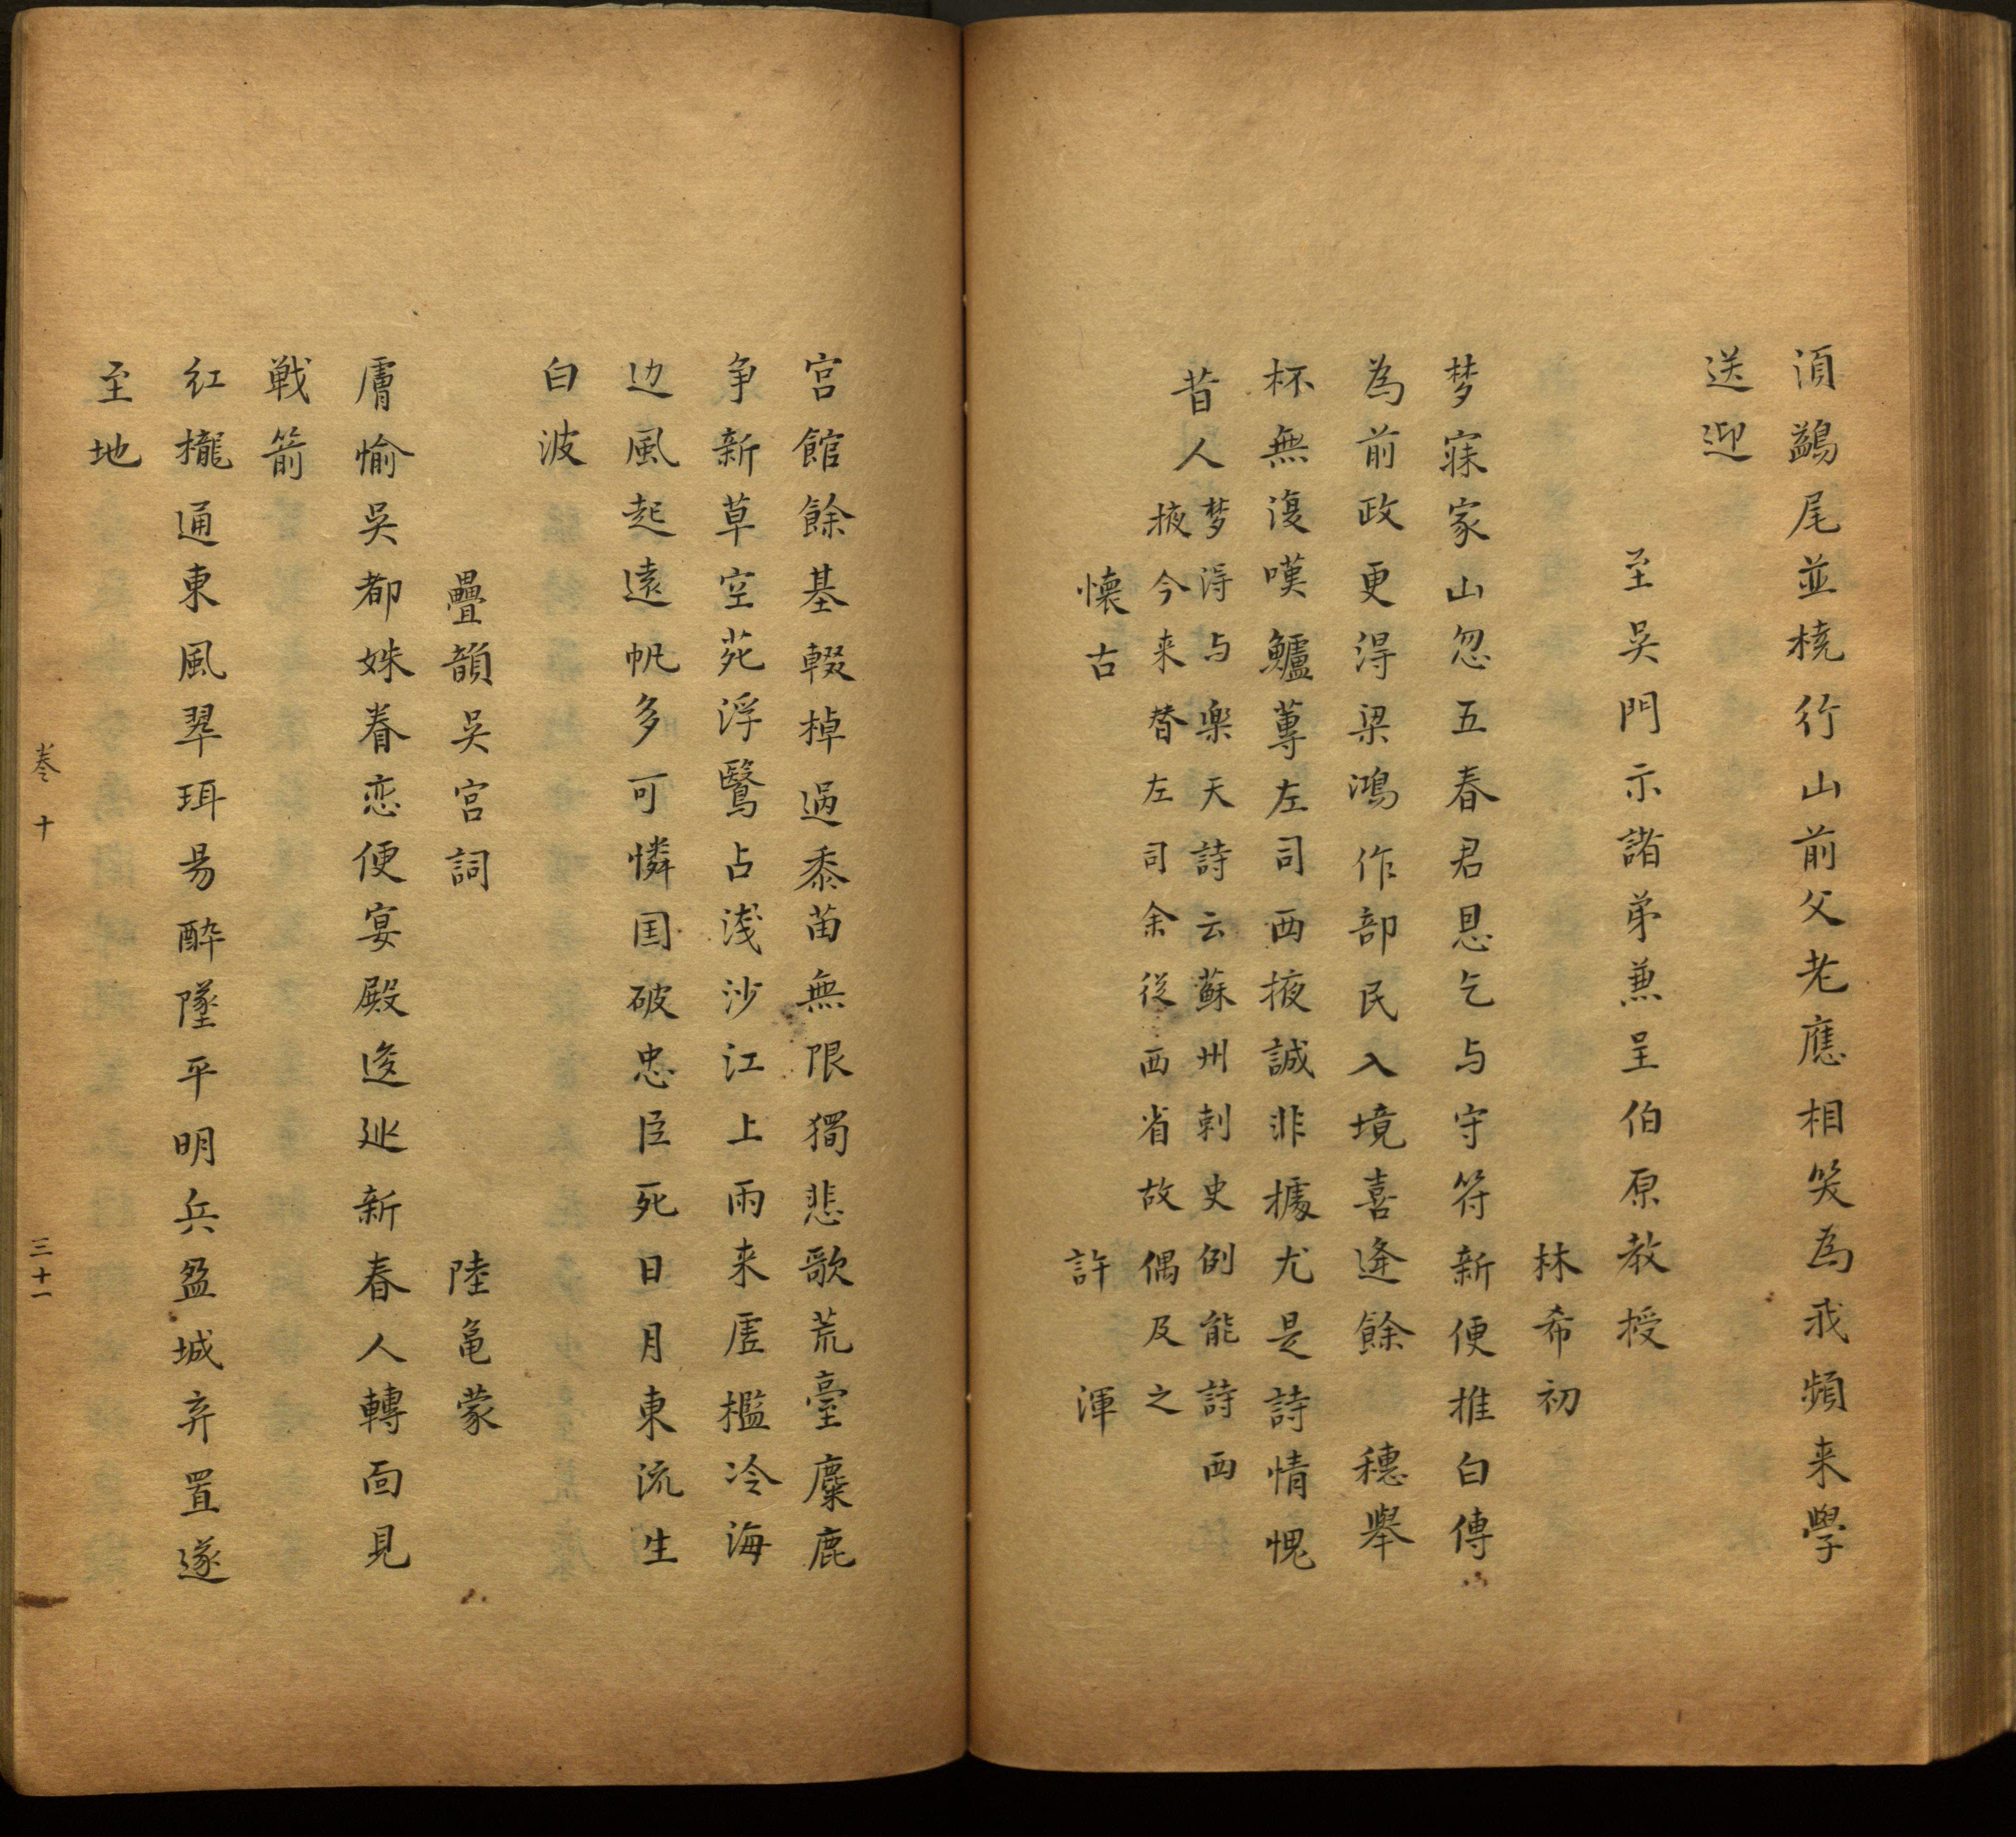 須鷁尾並橈行山前父老應相笑為我頻来學
送迎
至吴門示諸弟兼呈伯原教授
林希初
梦寐家山忽五春君恩乞与守符新便推白傅
為前政更得梁鴻作部民入境喜逢餘　穗舉
杯無復嘆鱸蓴左司西掖誠非據尤是詩情愧
昔人梦得与楽天詩云蘇州刺史例能詩西
掖今来替左司余從西省故偶及之
懐古　許渾
宮館餘基輟棹過黍苗無限獨悲歌荒臺麋鹿
争新草空苑浮鷖占浅沙江上雨来虚檻冷海
边風起遠帆多可憐国破忠臣死日月東流生
白波
疊韻吴宮詞　陸亀蒙
膚愉吴都姝眷恋便宴殿逡廵新春人轉面見
戦箭
紅櫳通東風翠珥易酔墜平明兵盈城弃置遂
至地
卷十
三十一